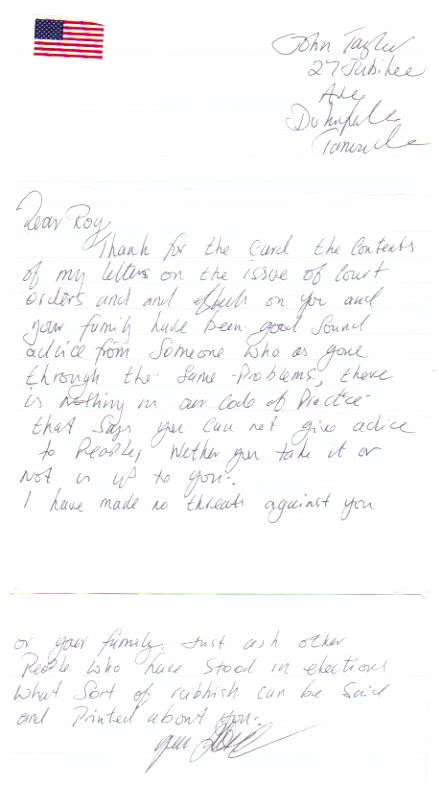 John Taylor
27 Jubilee
Ave
Dear Roy
Thank for the card the contents
of my letters on the issue of court
orders and and on you and
your family have been good sound
advice from someone who as gone
through the same Problems, there
is nothing in our Code of Practice
that Says you can not give advice
to People, Wether you take it or
not is up to you.
I have made no threats against you
or your family. Just ask other
People who have stood in elections
what sort of rubbish can be said
and Printed about you.